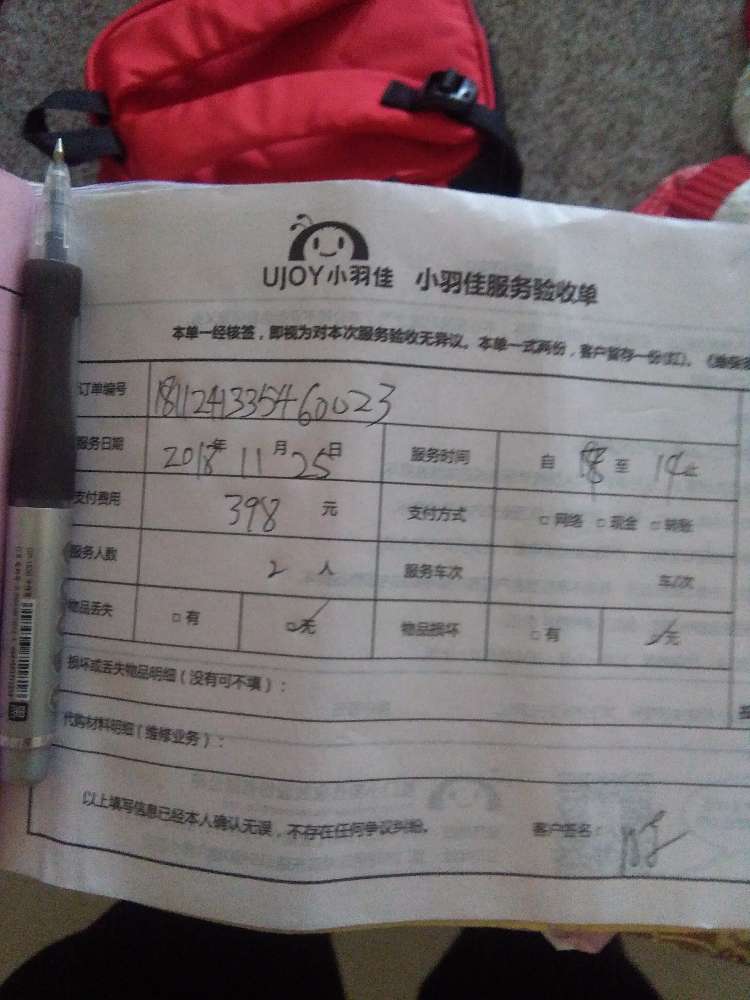 UJOY小羽佳 小羽佳服务验收单
本单一经核签，即视为对本次服务验收无异议。本单一式两份，客户暂存一份(红)。
订单编号 181124133546 0023
服务日期 2018年 11月 25日 服务时间 自 至 14止
支付费用 398 元 支付方式 □网络 □现金 □转账
服务人数 2 人 服务车次 车/次
物品丢失 □有 □无 物品损坏 □有 无
损坏或丢失物品明细（没有可不填）：
代购材料明细（维修业务）：
以上填写信息已经本人确认无误，不存在任何争议纠纷。 客户签名：